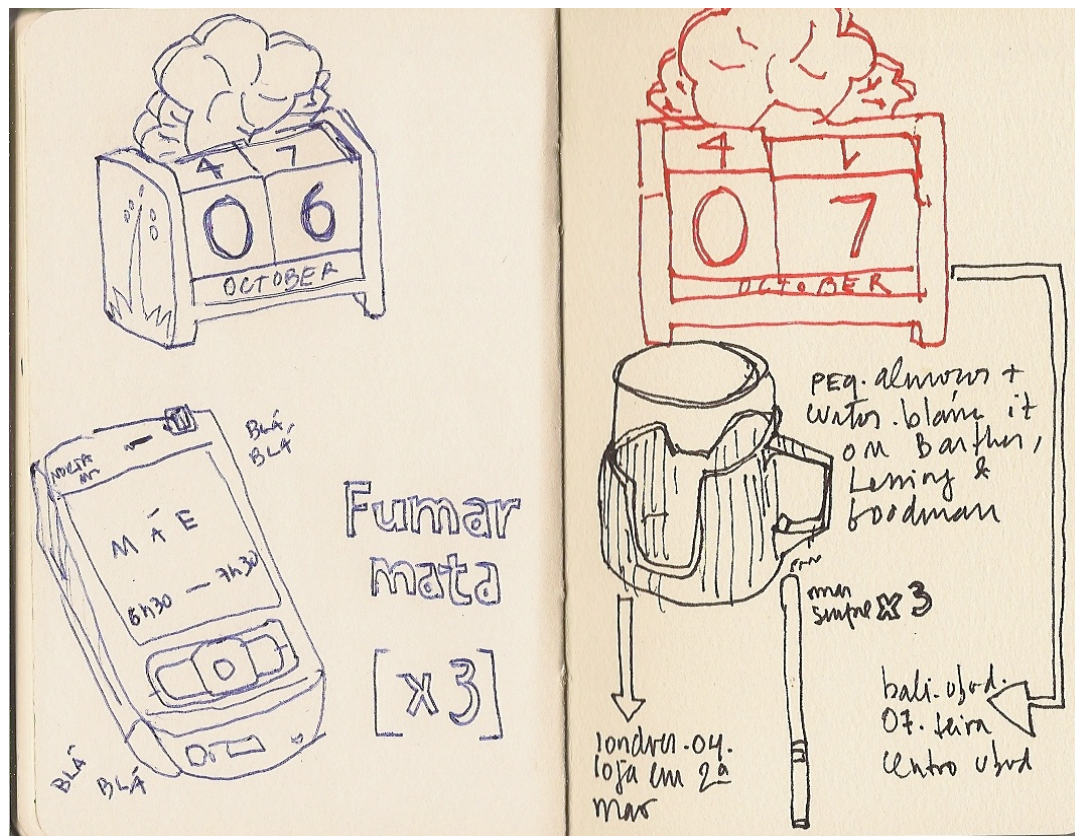 4 7
0 6
OCTOBER
BLÁ,
BLÁ
MÃE
6h30 — 7h30
Fumar
mata
[x3]
BLÁ
BLÁ
4 1
0 7
OCTOBER
peq. almoços +
writer. blame it
on Barthes,
Lessing &
Goodman
x3
londres.04.
loja em 2ª
mão
bali.ubud.
07.feira
centro ubud